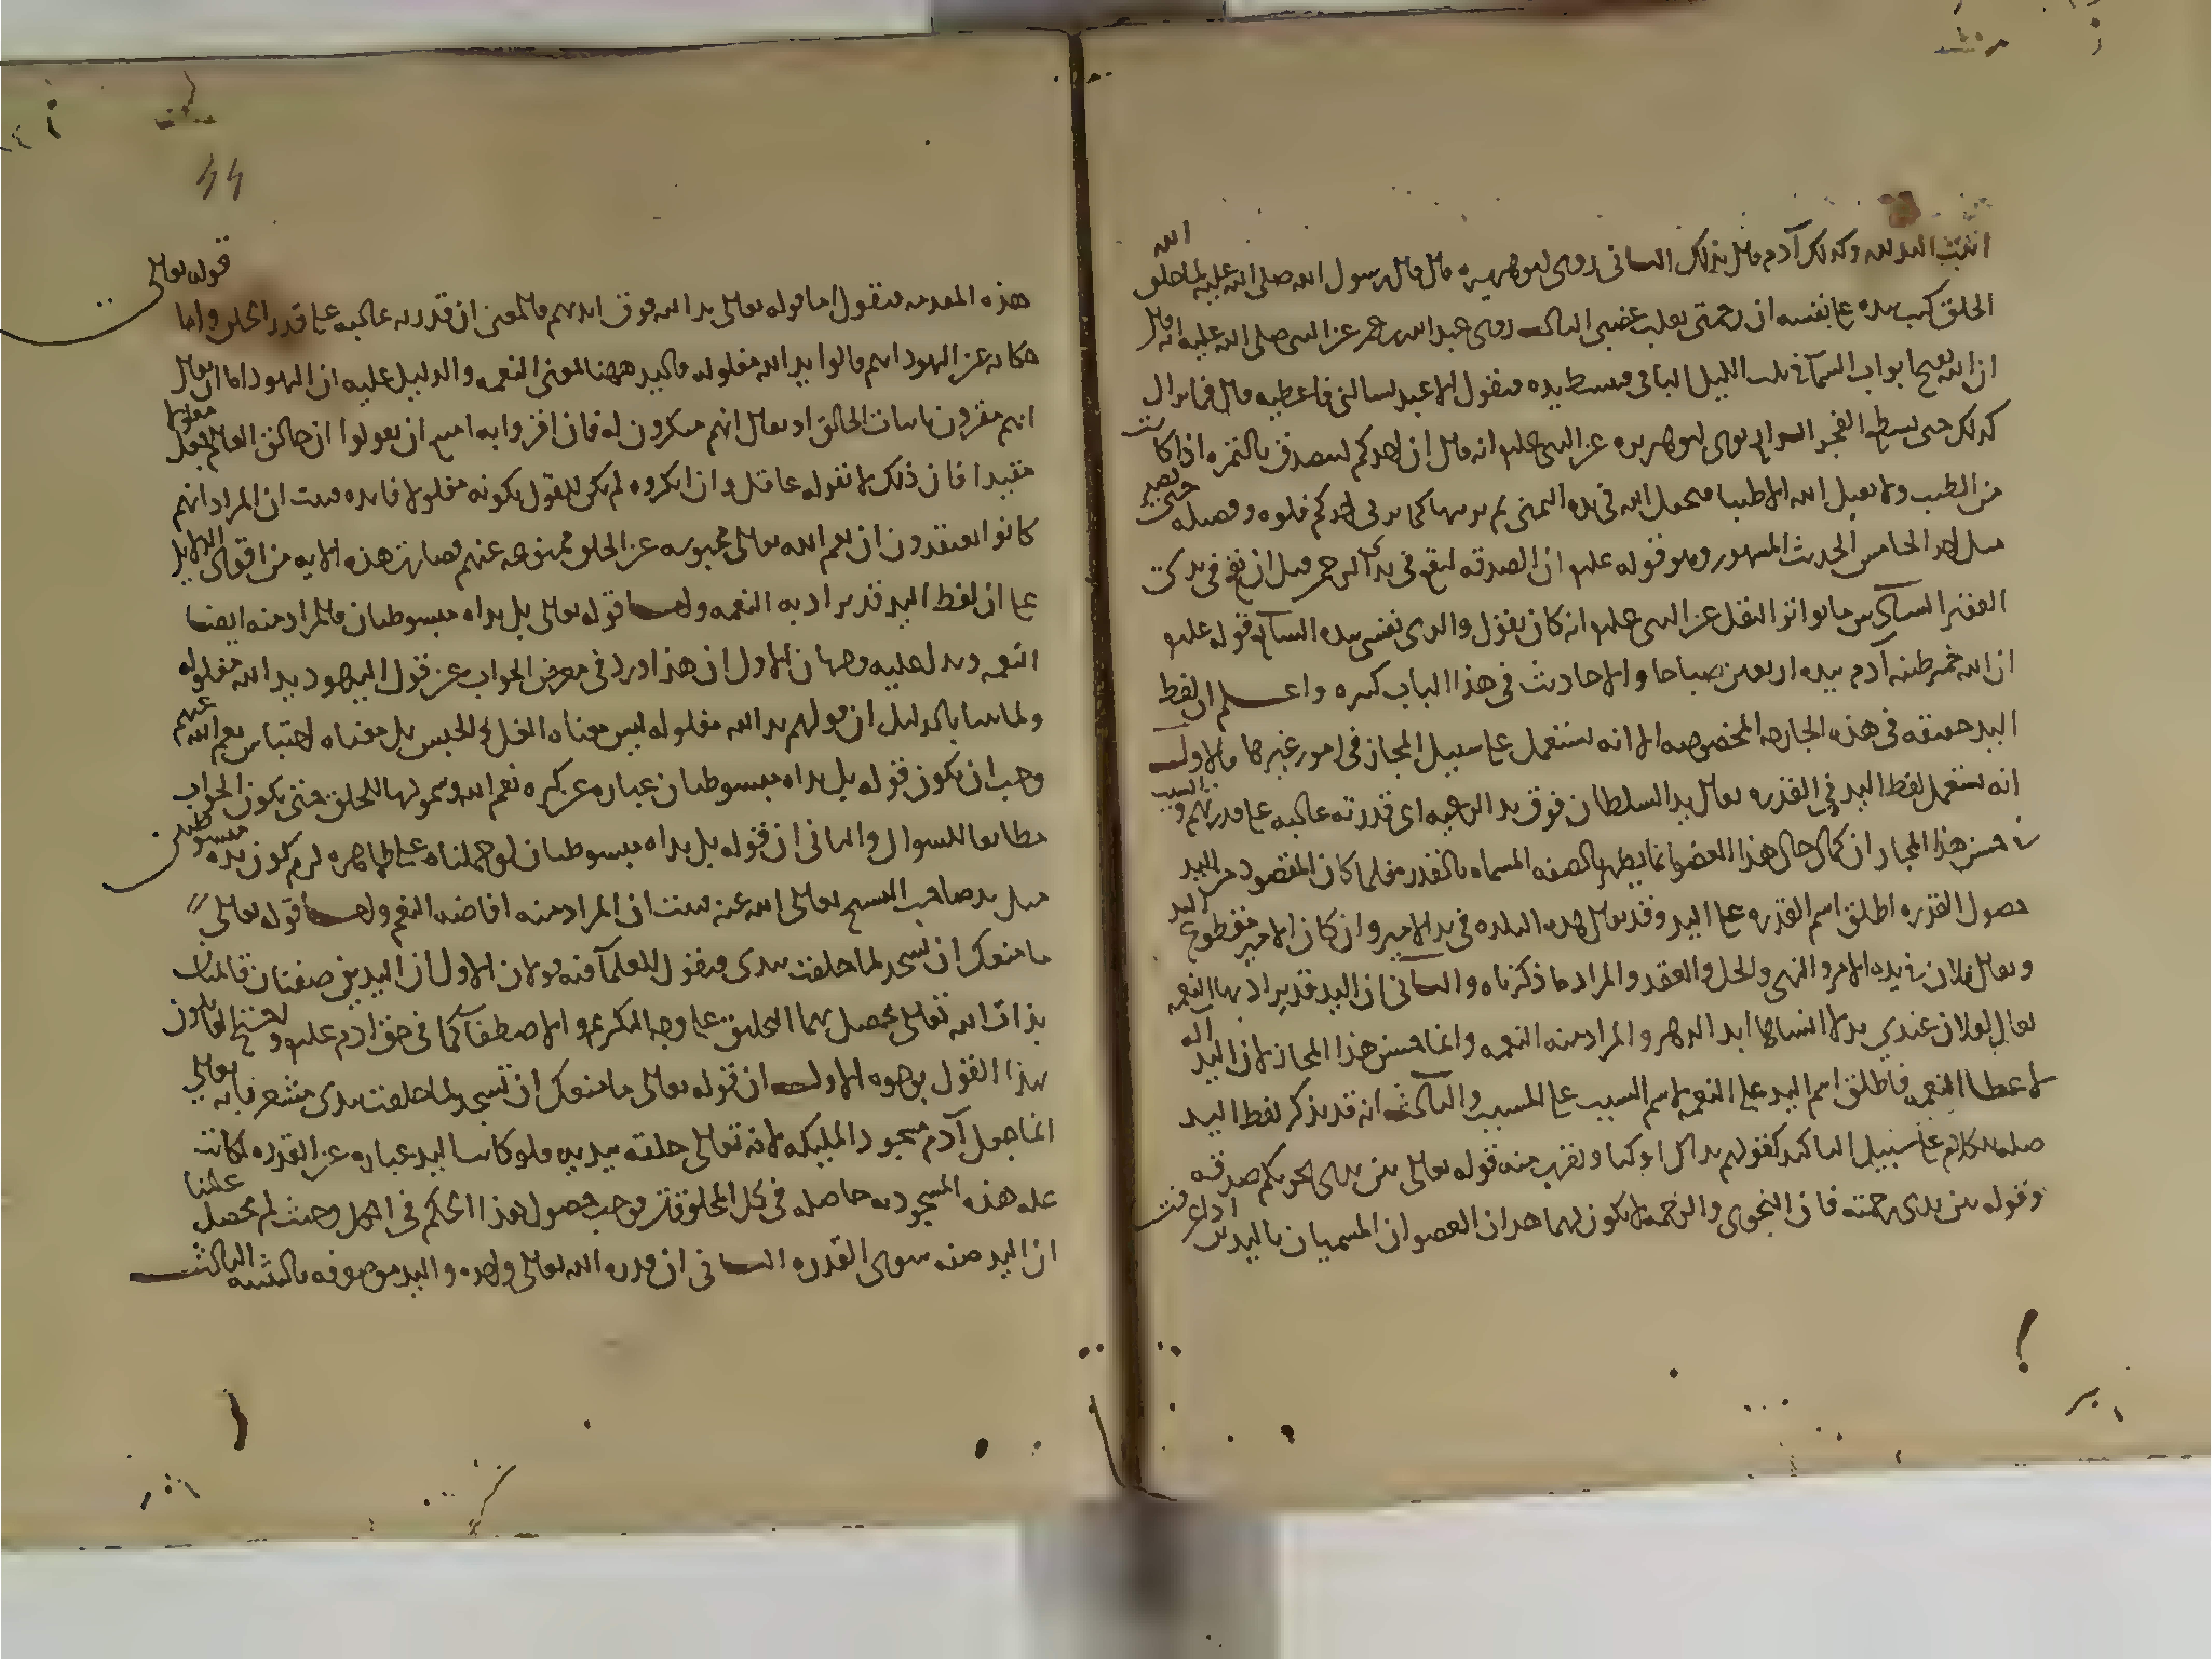 اثبت اليد لله وكذلك آدم قال بذلك الثاني روى ابو هريرة قال قال رسول الله صلى الله عليه لما خلق الله
الخلق كتب بيده على نفسه ان رحمتي تغلب غضبي الثالث روى عبد الله بن عمر عن النبي صلى الله عليه انه قال
ان الله يفتح ابواب السماء في ثلث الليل الباقي فيبسط يده فيقول الا عبد يسالني فاعطيه قال فما يزال
كذلك حتى يسطع الفجر الرابع روى ابو هريرة عن النبي عليه السلم انه قال ان احدكم ليتصدق بالتمرة اذا كانت
من الطيب ولا يقبل الله الا طيبا فيجعل الله في يده اليمنى ثم يربيها كما يربي احدكم فلوه وفصيله حتى تصير
مثل احد الخامس الحديث المشهور وهو قوله عليه السلم ان الصدقة لتقع في يد الرحمن قبل ان تقع في يد
الفقير السادس ما تواتر النقل عن النبي عليه السلم انه كان يقول والذي نفسي بيده السابع قوله عليه السلم
ان الله خمر طينة آدم بيده اربعين صباحا والاحاديث في هذا الباب كثيرة واعلم ان لفظ
اليد حقيقة في هذه الجارحة المخصوصة الا انه يستعمل على سبيل المجاز في امور غيرها فالاول
انه يستعمل لفظ اليد في القدرة يقال يد السلطان فوق يد الرعية اى قدرته غالبة على قدرتهم والسبب
في حسن هذا المجاز ان كمال حال هذا العضو انما يظهر بالصفة المسماة بالقدرة فلما كان المقصود من اليد
حصول القدرة اطلق اسم القدرة على اليد وقد يقال هذه البلدة في يد الامير وان كان الامير مقطوع اليد
ويقال فلان في يده الامر والنهي والحل والعقد والمراد ما ذكرناه والثاني ان اليد قد يراد بها النعمة
يقال لفلان عندي يد لا انساها ابد الدهر والمراد منه النعمة وانما حسن هذا المجاز لان اليد آلة
لاعطا النعمة فاطلق اسم اليد على النعمة لاسم السبب على المسبب والثالث انه قد يذكر لفظ اليد
صلة للكلام على سبيل التاكيد كقولهم يداك اوكتا ويقرب منه قوله تعالى بين يدي نجويكم صدقة
وقوله بين يدي رحمته فان النجوى والرحمة لا يكون لهما هذان العضوان المسميان باليدين اذا عرفت
هذه المقدمة فنقول اما قوله تعالى يد الله فوق ايديهم فالمعنى ان قدرته غالبة على قدر الخلق واما قوله تعالى
حكاية عن اليهود انهم قالوا يد الله مغلولة فاليد ههنا لمعنى النعمة والدليل عليه ان اليهود اما ان يقال
انهم مقرون باثبات الخالق او يقال انهم منكرون له فان اقروا به امتنع ان يقولوا ان خالق العالم جعل مغلولا
مقيدا فان ذلك لا يقوله عاقل وان انكروه لم يكن للقول بكونه مغلولا فايدة فثبت ان المراد انهم
كانوا يعتقدون ان نعم الله تعالى محبوسة عن الخلق ممنوعة عنهم فصارت هذه الاية من اقوى الدلايل
على ان لفظ اليد قد يراد به النعمة واما قوله تعالى بل يداه مبسوطتان فالمراد منه ايضا
النعمة ويدل عليه وجهان الاول ان هذا ورد في معرض الجواب عن قول اليهود يد الله مغلولة
ولما بينا بالدليل ان قولهم يد الله مغلولة ليس معناه الغل والحبس بل معناه احتباس نعم الله عنهم
وجب ان يكون قوله بل يداه مبسوطتان عبارة عن كثرة نعم الله وشمولها للخلق حتى يكون الجواب
مطابقا للسوال والثاني ان قوله بل يداه مبسوطتان لو حملناه على ظاهره لزم كون يده مبسوطتين
مثل يد صاحب التشنج تعالى الله عنه فثبت ان المراد منه افاضة النعم واما قوله تعالى
ما منعك ان تسجد لما خلقت بيدى فنقول للعلما فيه قولان الاول ان اليدين صفتان قائمتان
بذات الله تعالى يحصل بهما التخليق على وجه التكريم والاصطفا كما في حق ادم عليه السلم واحتج القايلون
بهذا القول بوجوه الاول ان قوله تعالى ما منعك ان تسجد لما خلقت بيدى مشعر بانه تعالى
انما جعل آدم مسجود المليكة لانه تعالى خلقه بيديه فلو كانت اليد عبارة عن القدرة لكانت
علة هذه المسجودية حاصلة في كل المخلوقات فوجب حصول هذا الحكم في الكل وحيث لم يحصل علمنا
ان اليد صفة سوى القدرة الثاني ان قدرة الله تعالى واحدة واليد موصوفة بالتثنية الثالث